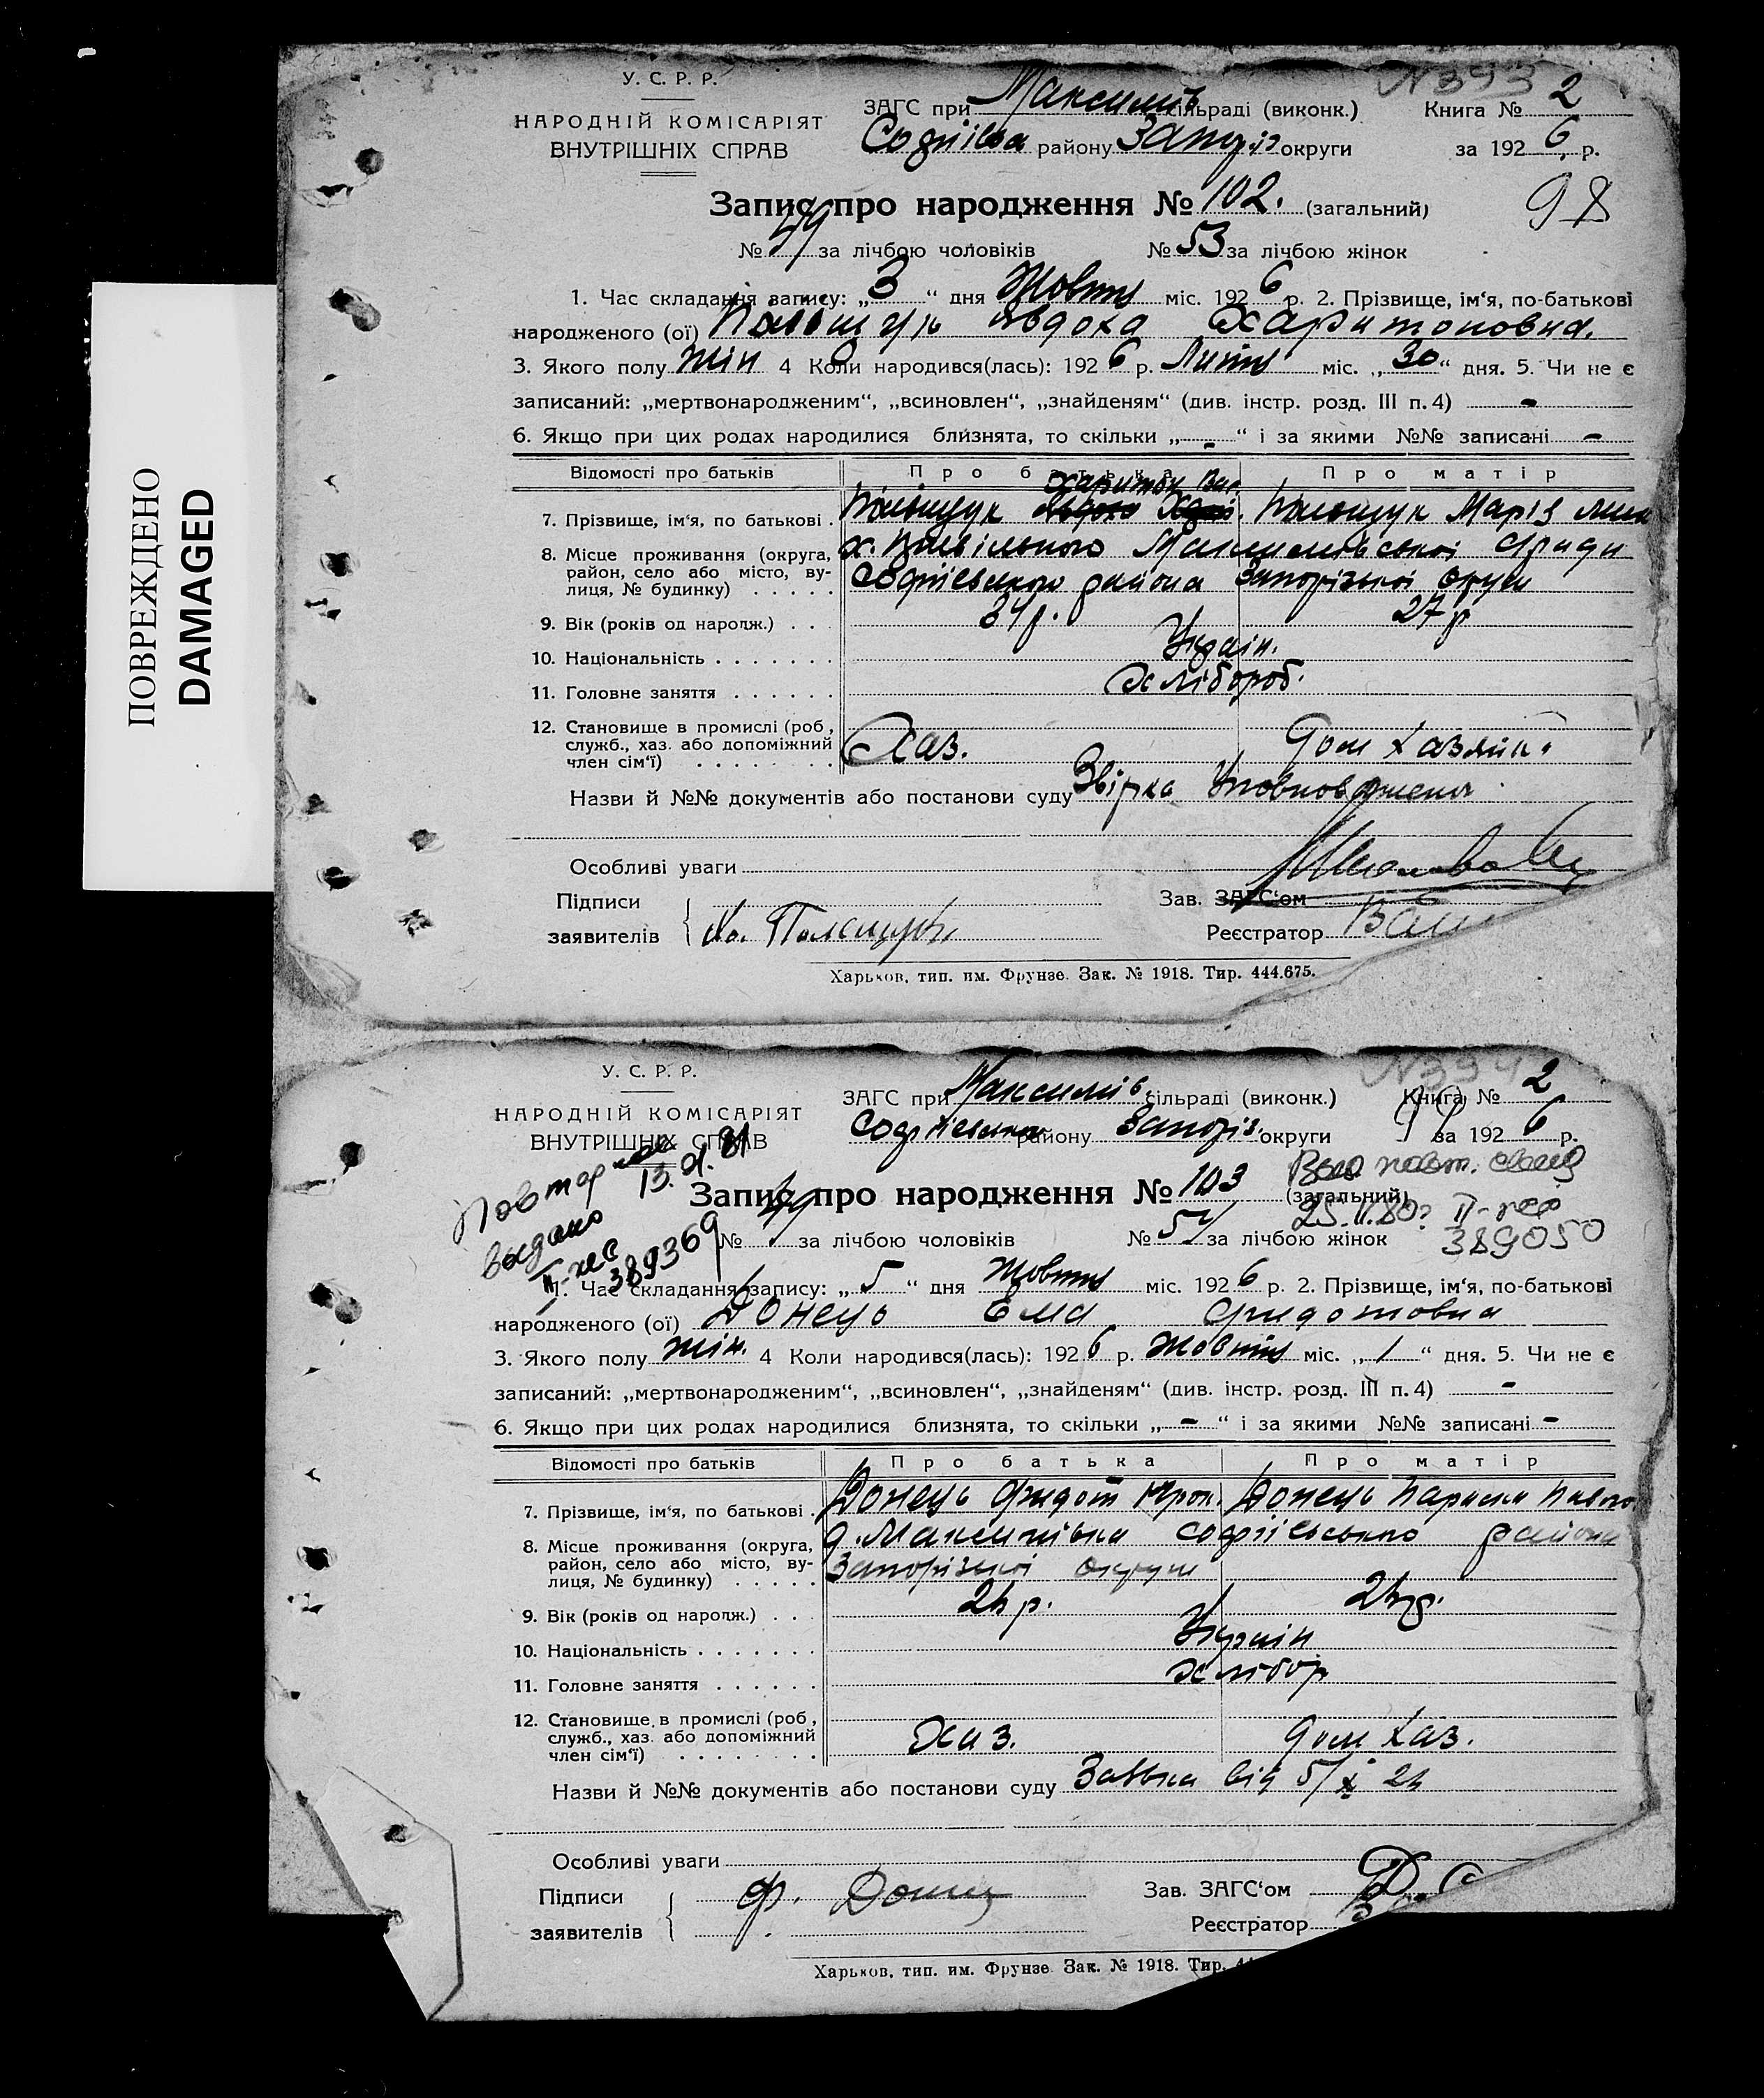 ПОВРЕЖДЕНО
DAMAGED
У. С. Р. Р.
НАРОДНІЙ КОМІСАРІЯТ
ВНУТРІШНІХ СПРАВ
N 393
ЗАГС при Максимів сільраді (виконк.) Книга № 2
району Запоріз округи за 1926 р.
98
Запис про народження № 102. (загальний)
№ 49 за лічбою чоловіків № 53 за лічбою жінок
1. Час складання запису: „3“ дня Жовтн міс. 1926 р. 2. Прізвище, ім‘я, по-батькові
народженого (ої) Авдоха Харитоновна.
3. Якого полу жін 4 Коли народився(лась): 1926 р. Липня міс. „30“ дня. 5. Чи не є
записаний: „мертвонародженим“, „всиновлен“, „знайденям“ (див. інстр. розд. III п. 4) -
6. Якщо при цих родах народилися близнята, то скільки „-“ і за якими №№ записані -
Відомості про батьків Про батька Про матір
Харитон Вас.
7. Прізвище, ім‘я, по батькові . Марія
8. Місце проживання (округа, район, село або місто, вулиця, № будинку) . . . . . х. Максимівської с/ради
Софіевського района Запорізької округи
9. Вік (років од народж.) . . . 34 р. 27 р
10. Національність . . . . . . . Украін.
11. Головне заняття . . . . . . Хлібороб.
12. Становище в промислі (роб., служб., хаз. або допоміжний член сім‘ї) . . . . . . . . Хаз. Дом хазяйк.
Назви й №№ документів або постанови суду Звірка
Особливі уваги
Підписи
заявителів
Зав. ЗАГС‘ом
Реєстратор
Харьков, тип. им. Фрунзе. Зак. № 1918. Тир. 444.675.
У. С. Р. Р.
НАРОДНІЙ КОМІСАРІЯТ
ВНУТРІШНІХ СПРАВ
N 394
ЗАГС при Максимів сільраді (виконк.) Книга № 2
Софіевськ району Запоріз. округи 99 за 1926 р.
Повторное
выдано
389369
Запис про народження № 103 (загальний)
повт. свид
389050
№ 49 за лічбою чоловіків № 54 за лічбою жінок
1. Час складання запису: „5“ дня Жовтн міс. 1926 р. 2. Прізвище, ім‘я, по-батькові
народженого (ої) Донець Ема Фидотовна
3. Якого полу жін. 4 Коли народився(лась): 1926 р. Жовтня міс. „1“ дня. 5. Чи не є
записаний: „мертвонародженим“, „всиновлен“, „знайденям“ (див. інстр. розд. III п. 4) -
6. Якщо при цих родах народилися близнята, то скільки „-“ і за якими №№ записані -
Відомості про батьків Про батька Про матір
7. Прізвище, ім‘я, по батькові . Донець Фидот Донець Параска Павло
8. Місце проживання (округа, район, село або місто, вулиця, № будинку) . . . . . Максимівка Софіевського района
Запорізької округи
9. Вік (років од народж.) . . .
10. Національність . . . . . . . Украін
11. Головне заняття . . . . . . Хлібор
12. Становище в промислі (роб., служб., хаз. або допоміжний член сім‘ї) . . . . . . . . Хаз. Дом хаз.
Назви й №№ документів або постанови суду Заявка від 5/X
Особливі уваги
Підписи
заявителів Ф. Донец
Зав. ЗАГС‘ом
Реєстратор
Харьков, тип. им. Фрунзе. Зак. № 1918. Тир.